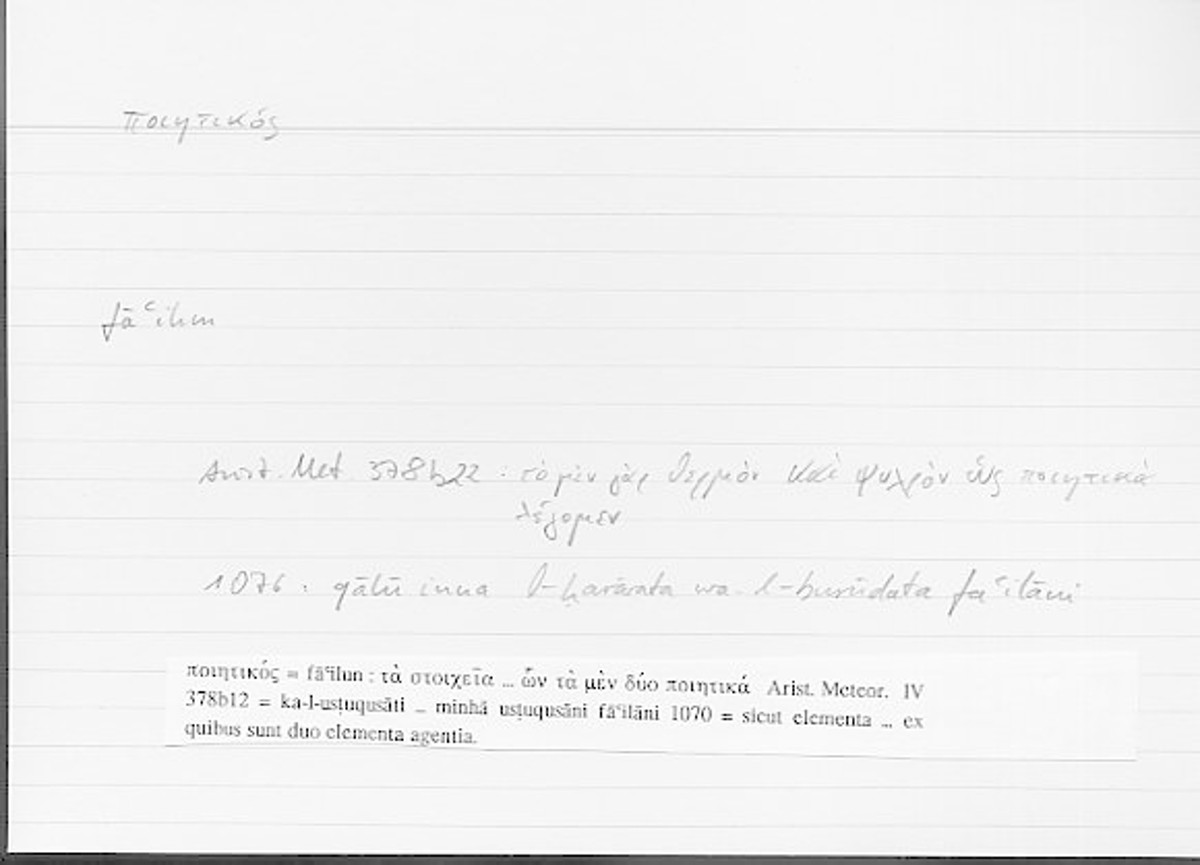 ποιητικός
fāʿilun
Arist. Met. 378b22 : τὸ μὲν γὰρ θερμὸν καὶ ψυχρὸν ὡς ποιητικὰ
λέγομεν
1076 : qālū inna l-ḥarārata wa-l-burūdata fāʿilāni
ποιητικός = fāʿilun : τὰ στοιχεῖα ... ὧν τὰ μὲν δύο ποιητικά Arist. Meteor. IV
378b12 = ka-l-usṭuqusāti ... minhā usṭuqusāni fāʿilāni 1070 = sicut elementa ... ex
quibus sunt duo elementa agentia.